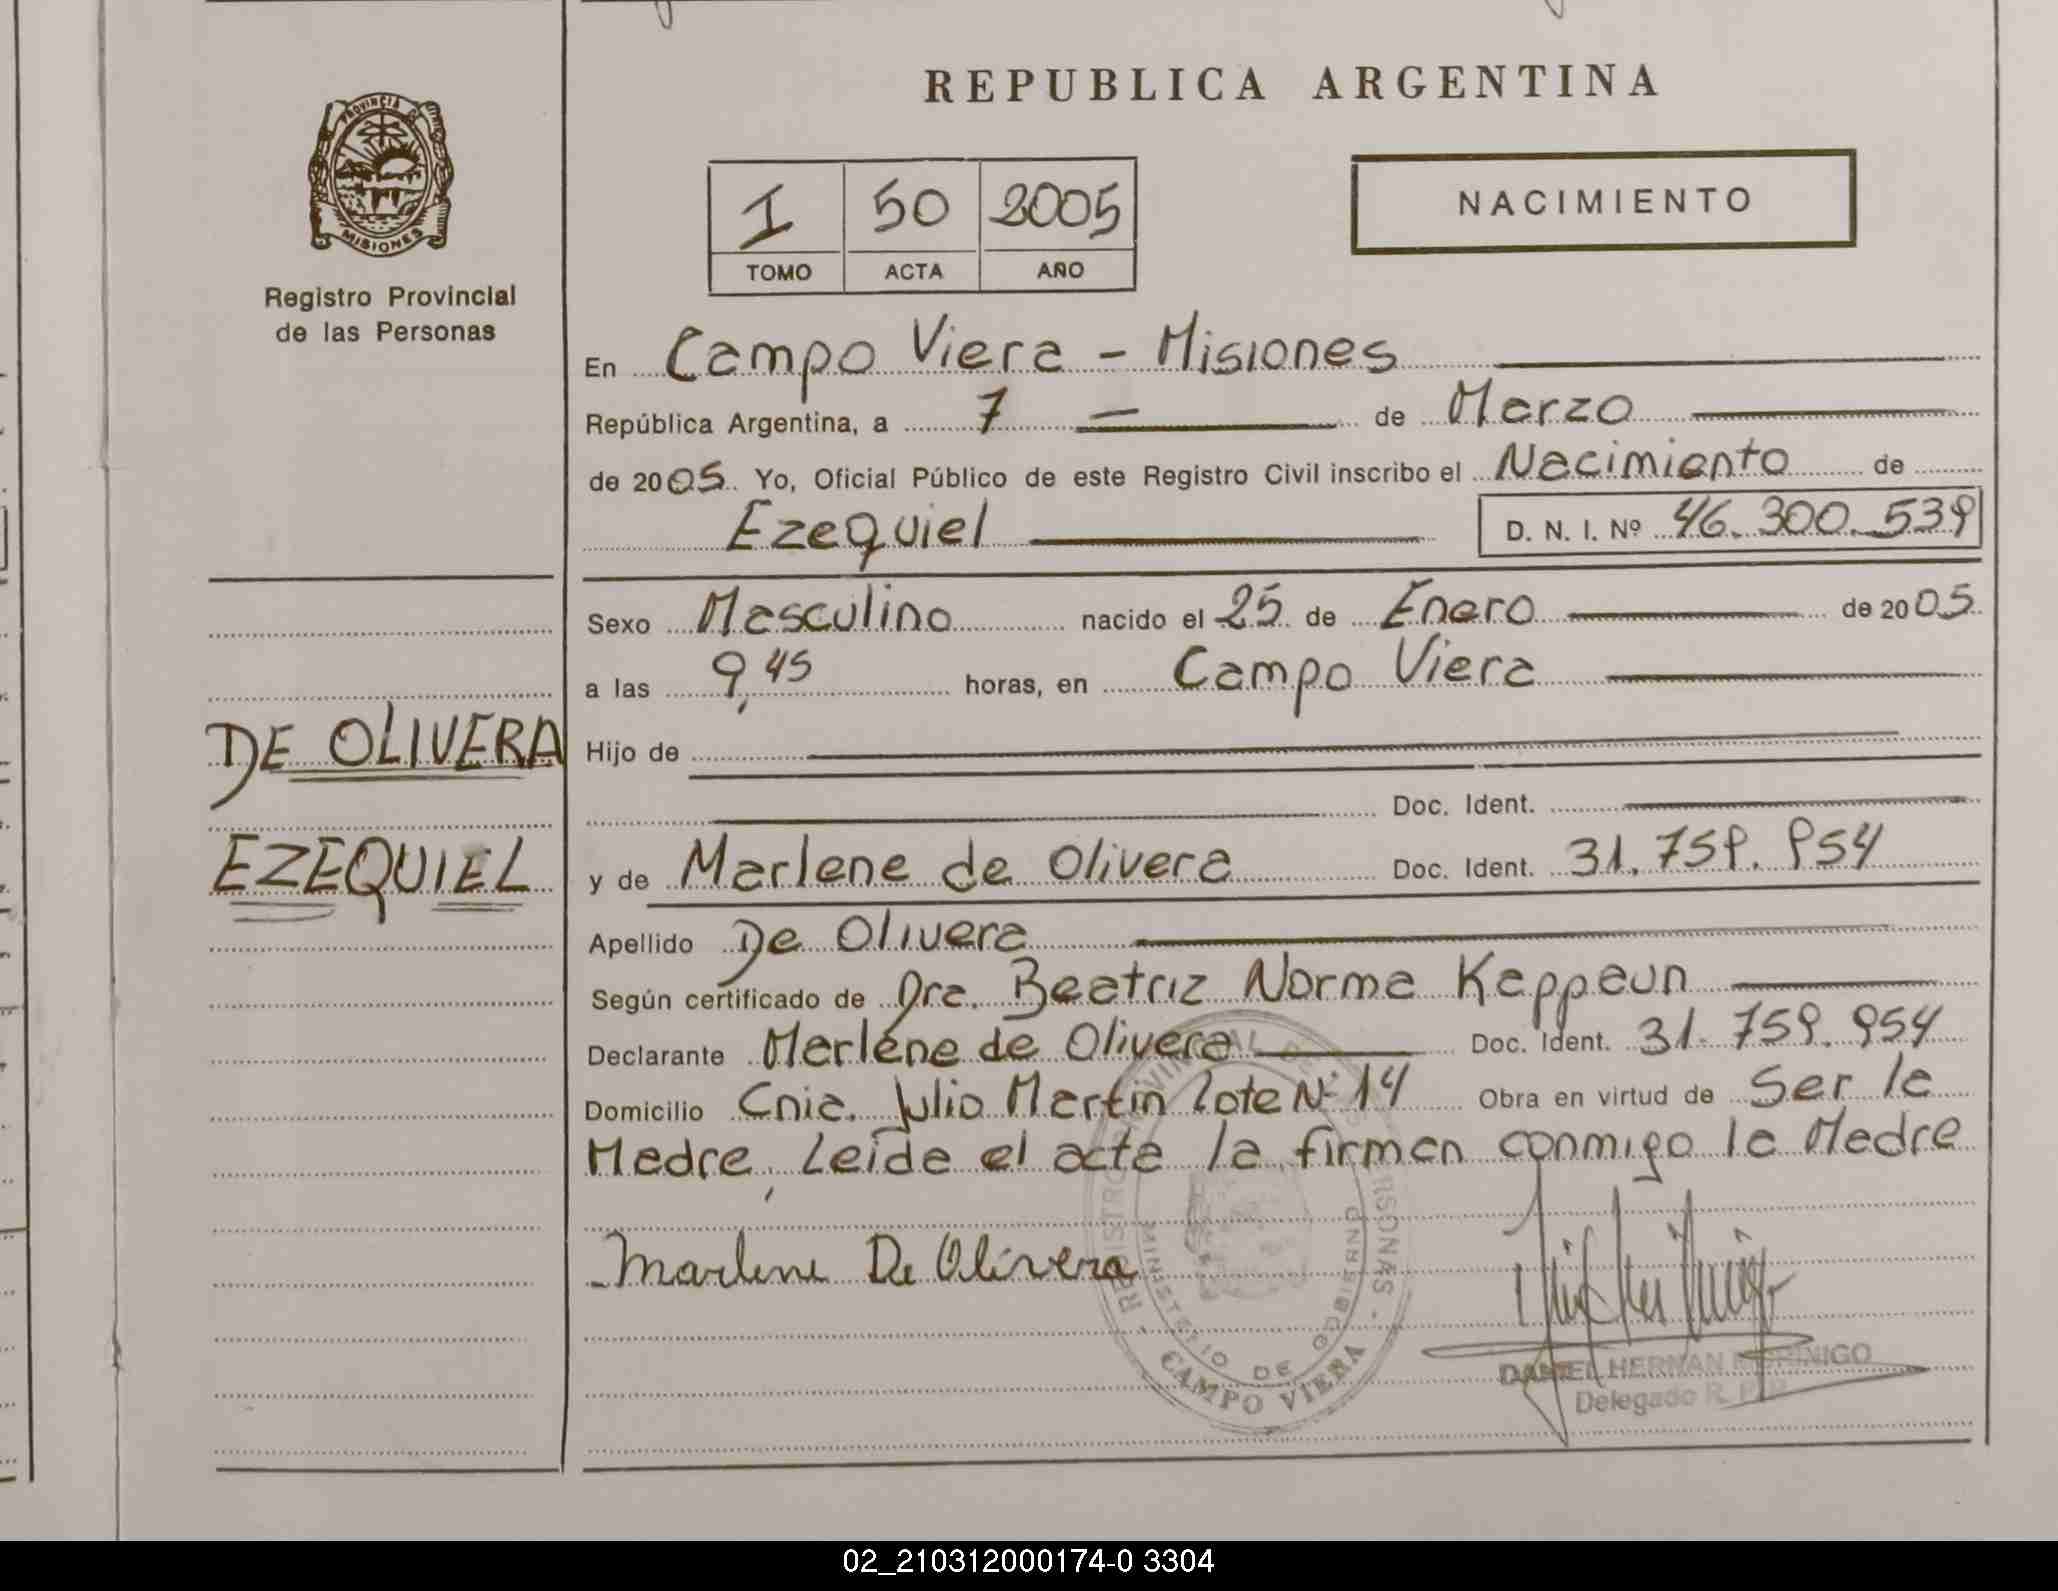 REPUBLICA ARGENTINA
PROVINCIA DE MISIONES
Registro Provincial
de las Personas
I 50 2005
TOMO ACTA AÑO
NACIMIENTO
En Campo Viera - Misiones
República Argentina, a 7 — de Marzo
de 2005. Yo, Oficial Público de este Registro Civil inscribo el Nacimiento de
Ezequiel D. N. I. Nº 46.300.539
Sexo Masculino nacido el 25 de Enero de 2005
a las 9,45 horas, en Campo Viera
DE OLIVERA
EZEQUIEL
Hijo de
Doc. Ident.
y de Marlene de Olivera Doc. Ident. 31.759.954
Apellido De Olivera
Según certificado de Dra. Beatriz Norma Keppaun
Declarante Marlene de Olivera Doc. Ident. 31.759.954
Domicilio Cnia. Julio Martin lote Nº 14 Obra en virtud de Ser la
Madre, Leída el acta la firman conmigo la Madre
Marlene De Olivera
REGISTRO PROVINCIAL DE LAS PERSONAS
MINISTERIO DE GOBIERNO
CAMPO VIERA
DANIEL HERNAN MORINIGO
Delegado R. P. P.
02_210312000174-0 3304